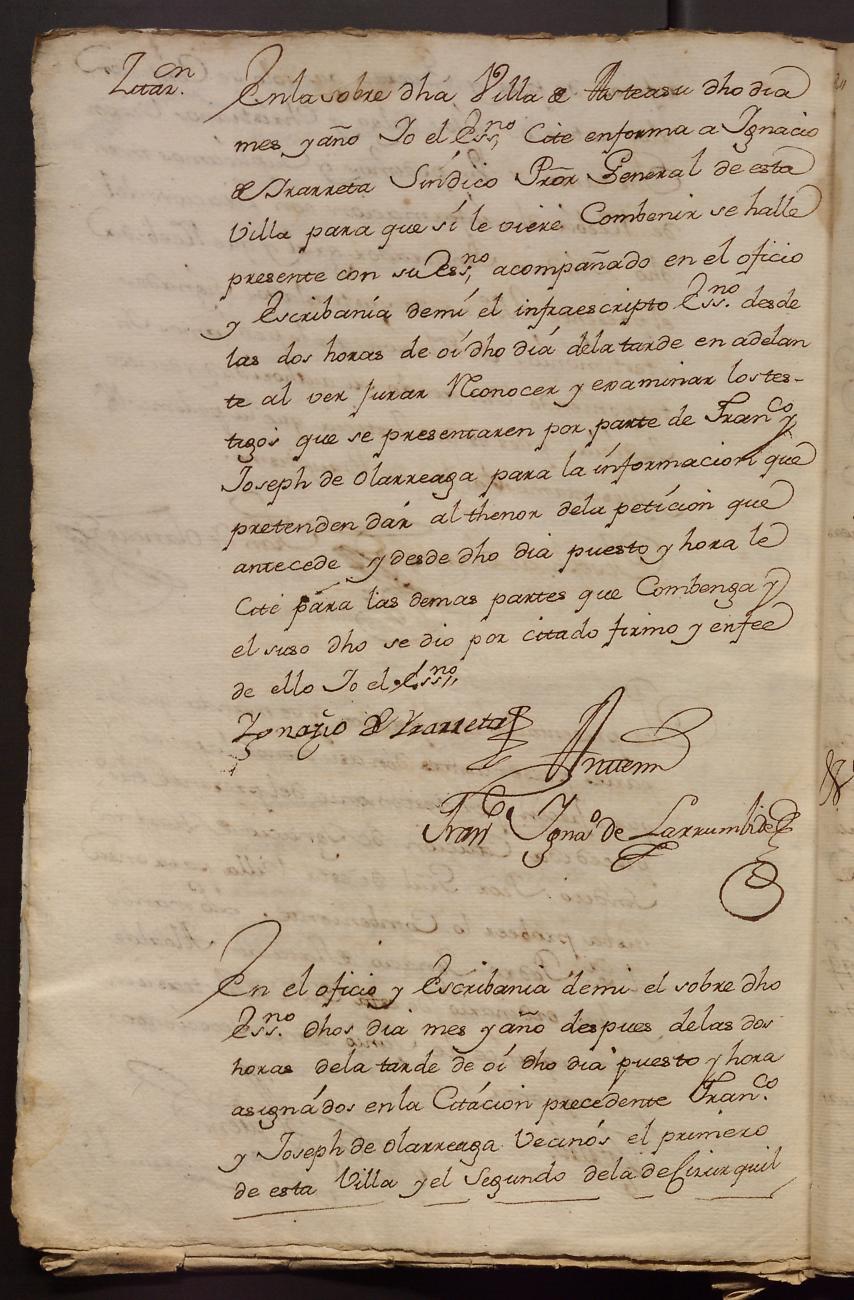 Zitaz.on
En la sobre dha Villa de Asteasu dho dia
mes y año Io el Ess.no Cite en forma a Ignacio
de Irarreta Sindico Pror General de esta
Villa para que si le viere Combenir se halle
presente con su Ess.no acompañado en el oficio
y Escribania demi el infraescripto Ess.no desde
las dos horas de oi dho dia dela tarde en adelan
te al ver Jurar Rconocer y examinar los tes-
tigos que se presentaren por parte de Fran.co y
Joseph de Olarreaga para la informacion que
pretenden dar al thenor dela peticion que
antecede y desde dho dia puesto y hora le
Cite para las demas partes que Combenga y
el suso dho se dio por citado firmo y enfee
de ello Io el Ess.no
Ygnazio de Yrarreta
Antemi
Fran.co Igna.o de Larrumbide
En el oficio y Escribania demi el sobre dho
Ess.no dhos dia mes y año despues delas dos
horas dela tarde de oi dho dia puesto y hora
asignados en la Citacion precedente Fran.co
y Joseph de Olarreaga Vecinos el primero
de esta Villa y el Segundo dela de Cizurquil